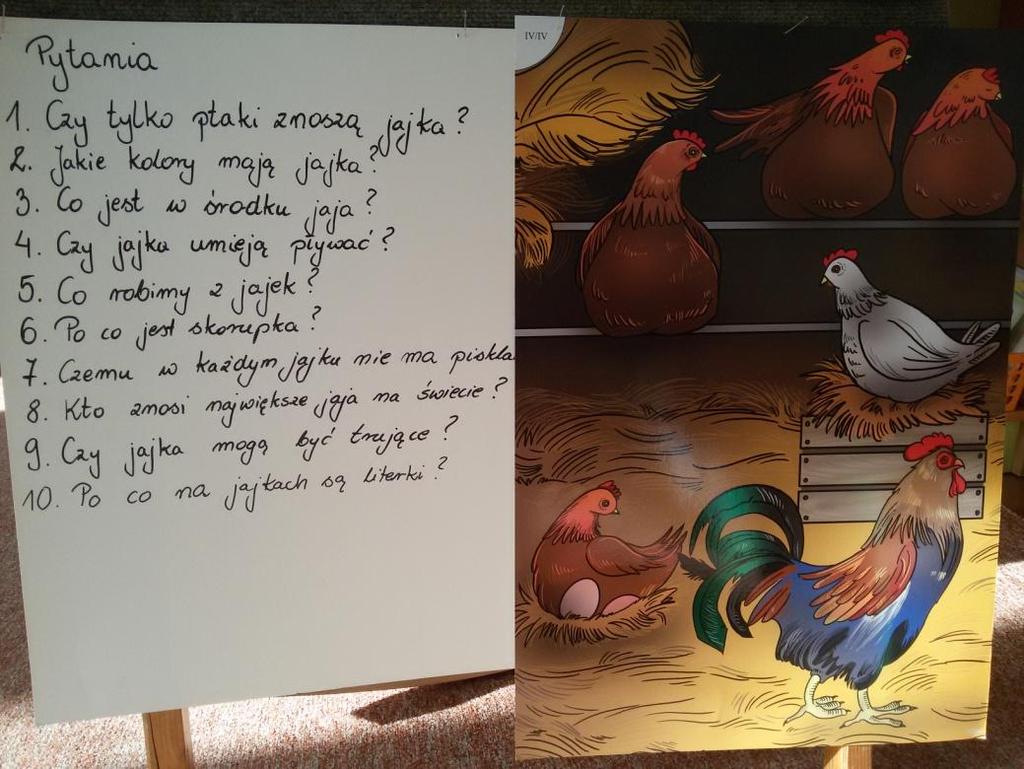 Pytania
1. Czy tylko ptaki znoszą jajka?
2. Jakie kolory mają jajka?
3. Co jest w środku jaja?
4. Czy jajka umieją pływać?
5. Co robimy z jajek?
6. Po co jest skorupka?
7. Czemu w każdym jajku nie ma piskla
8. Kto znosi największe jaja na świecie?
9. Czy jajka mogą być trujące?
10. Po co na jajkach są literki?
IV/IV